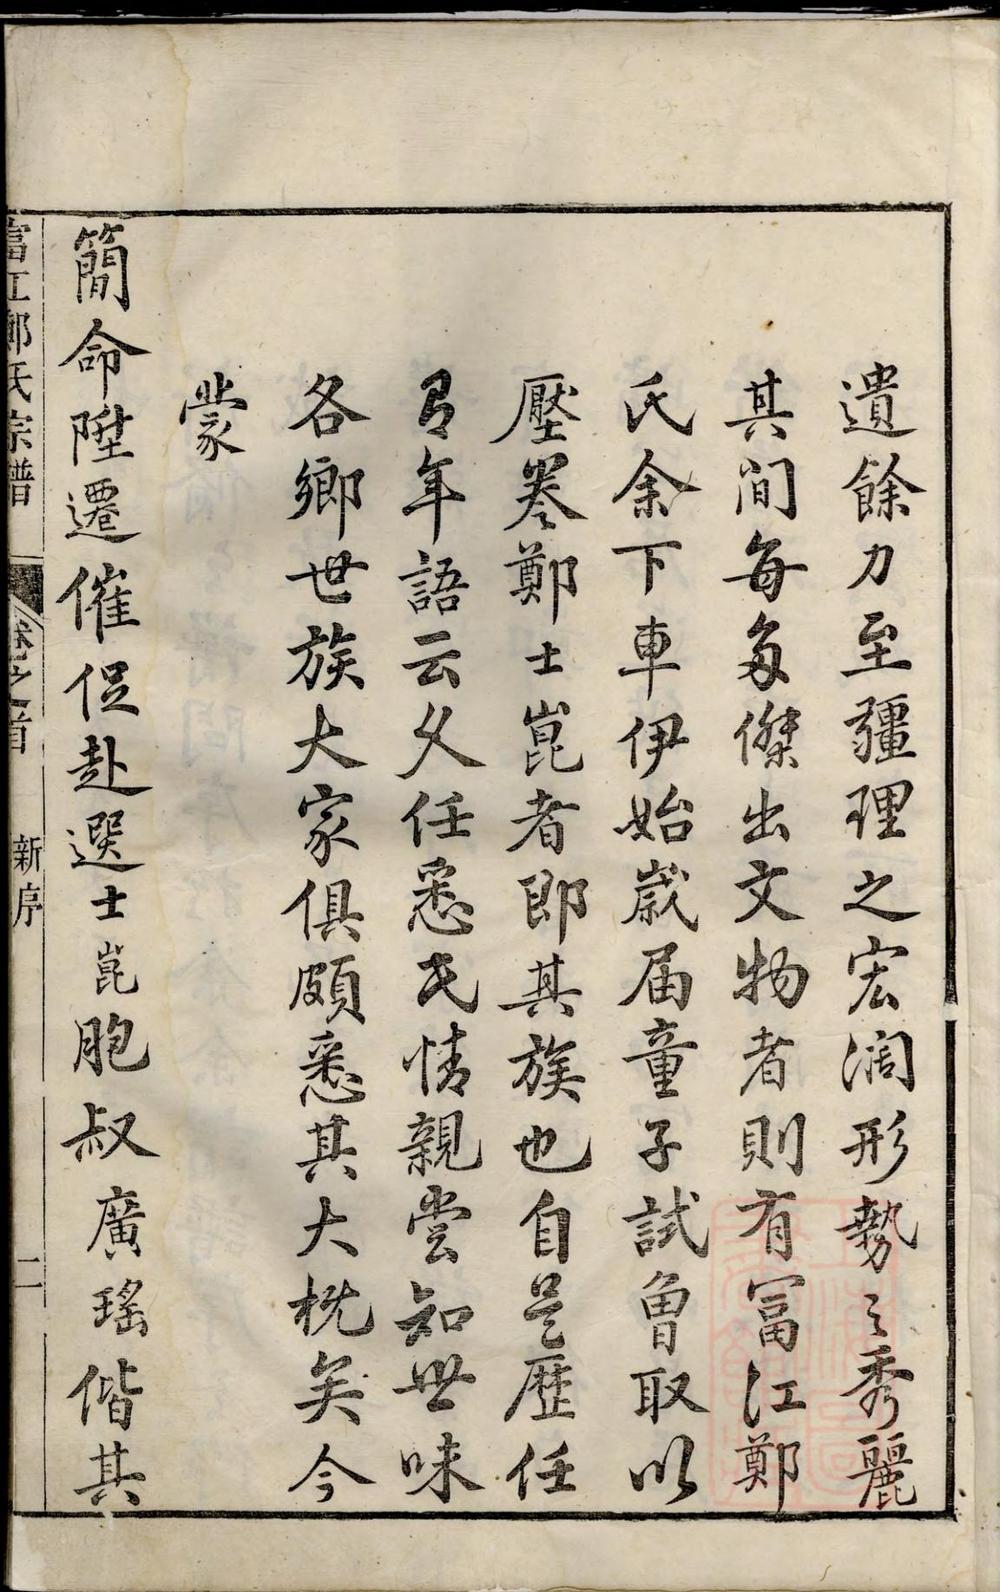 遺餘力至疆理之宏濶形勢之秀麗
其间每多傑出文物者則有冨江鄭
氏余下車伊始歲届童子試曾取以
壓卷鄭士崑者即其族也自是歴任
有年語云久任悉民情親嘗知世味
各鄉世族大家俱頗悉其大概矣今
蒙
簡命陞遷催促赴選士崑胞叔廣瑤偕其
富江鄭氏宗譜
卷之首
新序
二